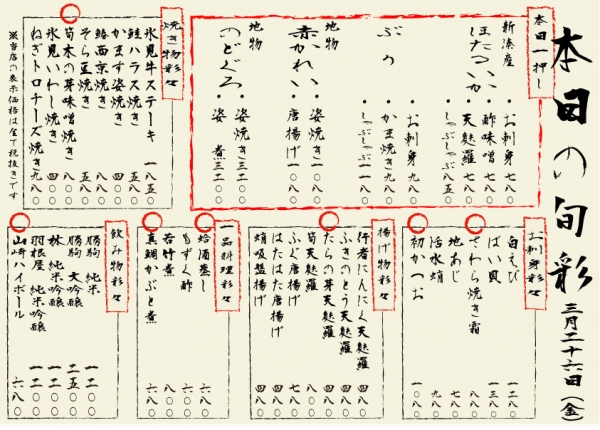 本日の旬彩
三月二十六日(金)
本日一押し
新湊産
ほたるいか
・お刺身 七八〇
・酢味噌 七八〇
・天麩羅 七八〇
・しゃぶしゃぶ 一八五〇
ぶり
・お刺身 一一八〇
・かま焼き 九八〇
・しゃぶしゃぶ 一一八〇
地物
赤かれい
・姿焼き 一〇八〇
・唐揚げ 一〇八〇
地物
のどぐろ
・姿焼き 三一八〇
・姿煮 三一八〇
焼き物彩々
氷見牛ステーキ 一八五〇
鮭ハラス焼き 五八〇
かます姿焼き 四八〇
鰆西京焼き 五八〇
そら豆焼き 五八〇
筍木の芽味噌焼き 六八〇
氷見いわし焼き 四八〇
ねぎトロチーズ焼き 九八〇
※当店の表示価格は全て税抜きです
お刺身彩々
白えび 一二八〇
ばい貝 一三八〇
さわら焼き霜 八八〇
地あじ 七八〇
活水蛸 九八〇
初かつお 一〇八〇
揚げ物彩々
行者にんにく天麩羅 四八〇
ふきのとう天麩羅 四八〇
たらの芽天麩羅 五八〇
筍天麩羅 六八〇
ふぐ唐揚げ 七八〇
はたはた唐揚げ 四八〇
蛸吸盤揚げ 四八〇
一品料理彩々
蛤酒蒸し 六八〇
もずく酢 四八〇
若竹煮 八八〇
真鯛かぶと煮 六八〇
飲み物彩々
勝駒 純米 一一〇〇
勝駒 大吟醸 二五〇〇
林 純米吟醸 一二〇〇
羽根屋 純米吟醸 一二〇〇
山崎ハイボール 六八〇